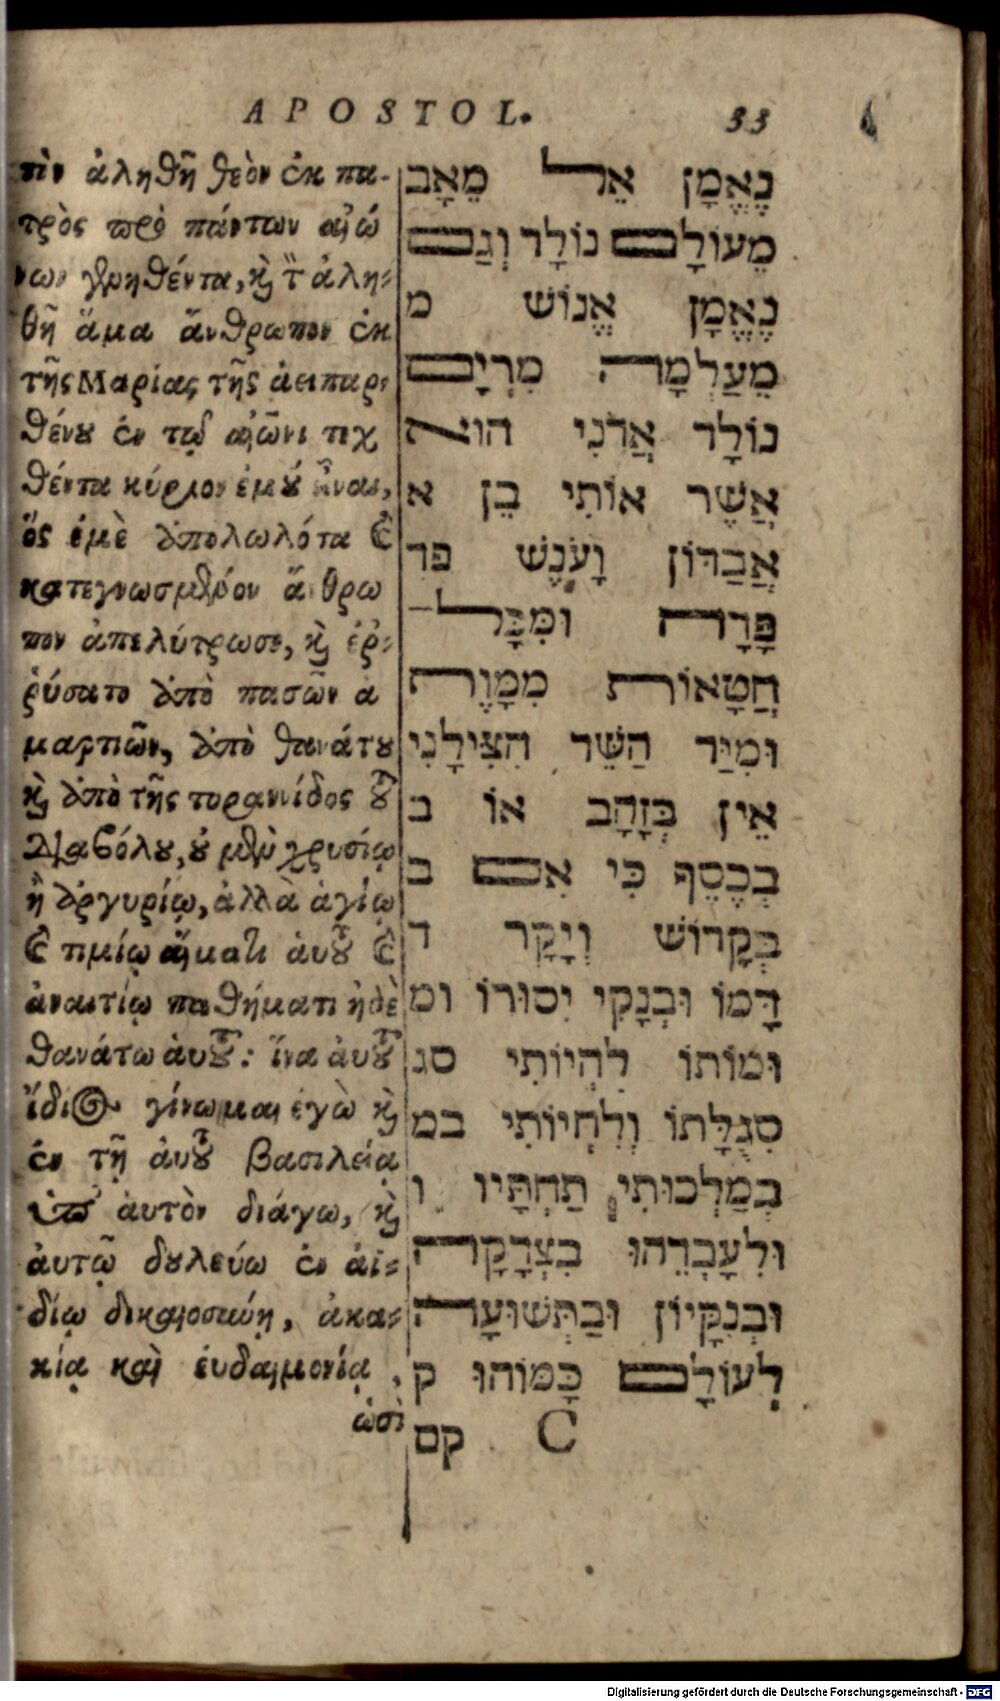 APOSTOL. 33
τὶν ἀληθῆ θεὸν ἐκ πα-
τρὸς πρὸ πάντων αἰώ
νων γεννηθέντα, καὶ τὸν ἀλη-
θῆ ἅμα ἄνθρωπον ἐκ
τῆς Μαρίας τῆς ἀειπαρ-
θένου ἐν τῷ αἰῶνι τεχ
θέντα κύριον ἐμοῦ εἶναι,
ὅς ἐμὲ ἀπολωλότα καὶ
κατεγνωσμένον ἄνθρω
πον ἀπελύτρωσε, καὶ ἐῤ-
ῥύσατο ἀπὸ πασῶν ἁ
μαρτιῶν, ἀπὸ θανάτου
καὶ ἀπὸ τῆς τυραννίδος τοῦ
Διαβόλου, οὐ μὲν χρυσίῳ
ἢ ἀργυρίῳ, ἀλλὰ ἁγίῳ
καὶ τιμίῳ αἵματι ἁυτοῦ καὶ
ἀναιτίῳ παθήματι ἠδὲ
θανάτω ἁυτοῦ: ἵνα ἁυτοῦ
ἴδιος γίνωμαι ἐγὼ καὶ
ἐν τῇ ἁυτοῦ βασιλείᾳ
ὑπ' ἀυτὸν διάγω, καὶ
ἀυτῷ δουλεύω ἐν ἀϊ-
δίῳ δικαιοσύνῃ, ἀκα-
κίᾳ καὶ ἐυδαιμονίᾳ,
ὡσὶ
נֶאֱמָן אֵל מֵאָב
מֵעוֹלָם נוֹלָד וְגַם
נֶאֱמָן אֱנוֹשׁ מ
מֵעַלְמָה מִרְיָם
נוֹלָד אֲדֹנִי הוּא
אֲשֶׁר אוֹתִי בֵן א
אֲבַדּוֹן וָעֹנֶשׁ פד
פָּדָה וּמִכָּל־
חֲטָאוֹת מִמָּוֶת
וּמִיַּד הַשֵּׁד הִצִּילָנִי
אֵין בְּזָהָב אוֹ ב
בְּכֶסֶף כִּי אִם ב
בְּקָדוֹשׁ וְיָקָר ד
דָּמוֹ וּבְנָקִי יִסּוּרוֹ ומ
וּמוֹתוֹ לִהְיוֹתִי סג
סְגֻלָּתוֹ וְלִחְיוֹתִי במ
בְּמַלְכוּתִי תַחְתָּיו ו
וּלְעָבְדֵהוּ בִּצְדָקָה
וּבְנִקָּיוֹן וּבַתְּשׁוּעָה
לְעוֹלָם כָּמוֹהוּ ק
C קם
Digitalisierung gefördert durch die Deutsche Forschungsgemeinschaft - DFG